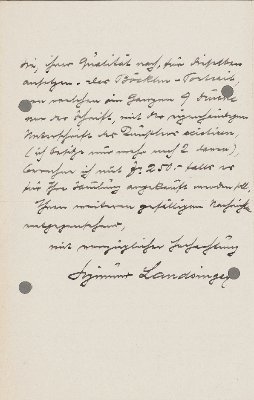 die, ihrer Qualität nach, für dieselben
ansetzen. Das Böcklin-Portrait,
von welchem im Ganzen 9 Drucke
vor der Schrift, mit der eigenhändigen
Unterschrift des Künstlers existiren,
(ich besitze nur mehr noch 2 davon),
berechne ich mit 250.- falls es
für Ihre Samlung angekauft werden soll.
Ihren weiteren gefälligen Nachrichten
entgegensehend,
mit vorzüglicher Hochachtung
Sigmund Landsinger